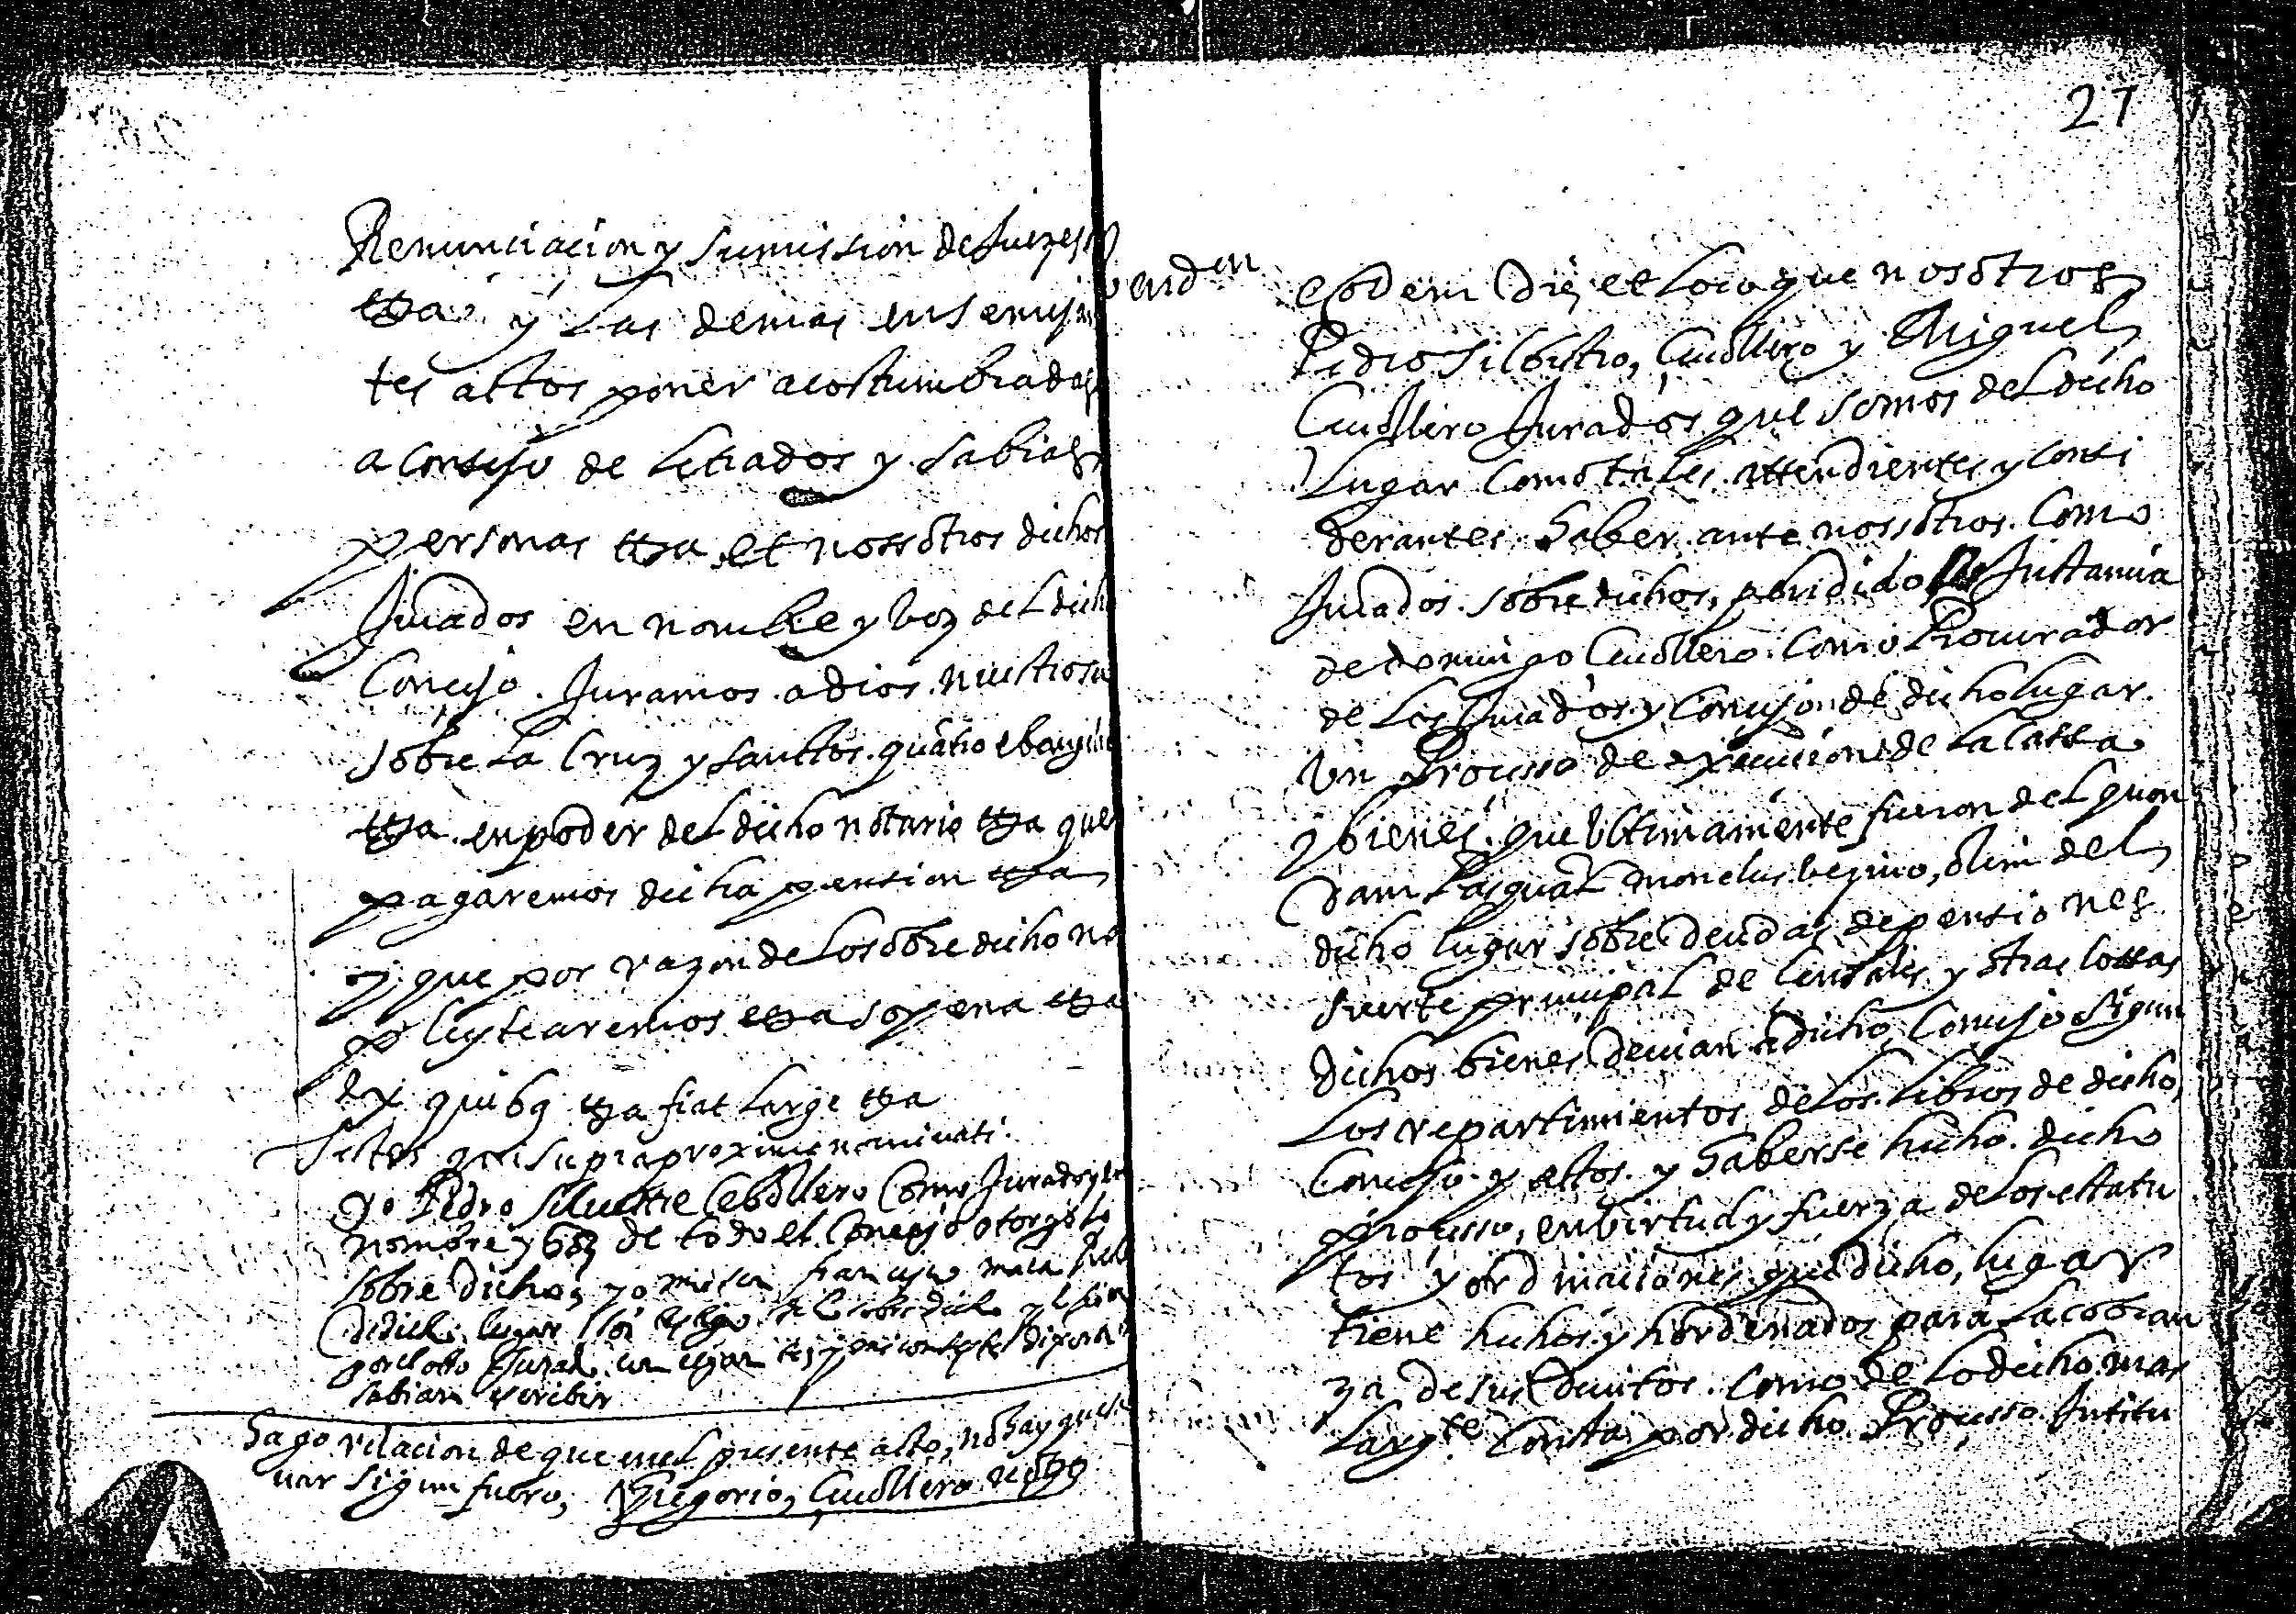 Renunciacion y sumission de Juezes
etta y las demas en semejan
tes actos poner acostumbradas
a consejo de letrados y sabias
personas etta et nossotros dichos
Jurados en nombre y boz del dicho
Concejo. Juramos a dios nuestro s
sobre la Cruz y santtos quatro ebangelios
etta en poder del dicho notario etta que
pagaremos dicha pension etta
y que por razon de lo sobredicho no
pleytearemos etta so pena etta
Ex quibus etta fiat large etta
Testes qui supra proxime nominati.
Yo Pedro Siluestre Cebollero Como Jurado y en
nombre y boz de todo el Concejo otorgo lo
sobre dicho, yo mosen francisco
de dicho lugar soi testigo de lo sobre dicho y
por el otro Jurado y que dixeron
sabian screbir
Hago relacion de que en el presente acto, no hay que sal
uar sigun fuero, Gregorio, Ciuollero notº
27
vendon
eodem die, et loco que nosotros
Pedro Silbestro, Ciuollero y Miguel
Ciuollero Jurados que somos del dicho
Lugar como tales attendientes y consi
derantes haber ante nossotros. Como
Jurados sobre dichos, pendido a Instancia
de domingo Ciuollero. Como Procurador
de los Jurados y Concejo de dicho lugar.
Un Processo de execucion de la Cassa
y bienes que ultimamente fueron del quon
dam Pasqual Monclus bezino, olim del
dicho lugar sobre deudas de pensiones
suerte principal de censales y otras cossas
dichos bienes deuian a dicho, Concejo sigun
Los repartimientos de los libros de dicho,
Concejo y actos. y haberse hecho dicho
processo, en birtud y fuerza de los estatu
tos y ordinaciones que dicho, lugar
tiene hechos y hordenados para la cobran
za de sus deuitos. Como de lo dicho mas
Largte Consta por dicho Processo Intitu